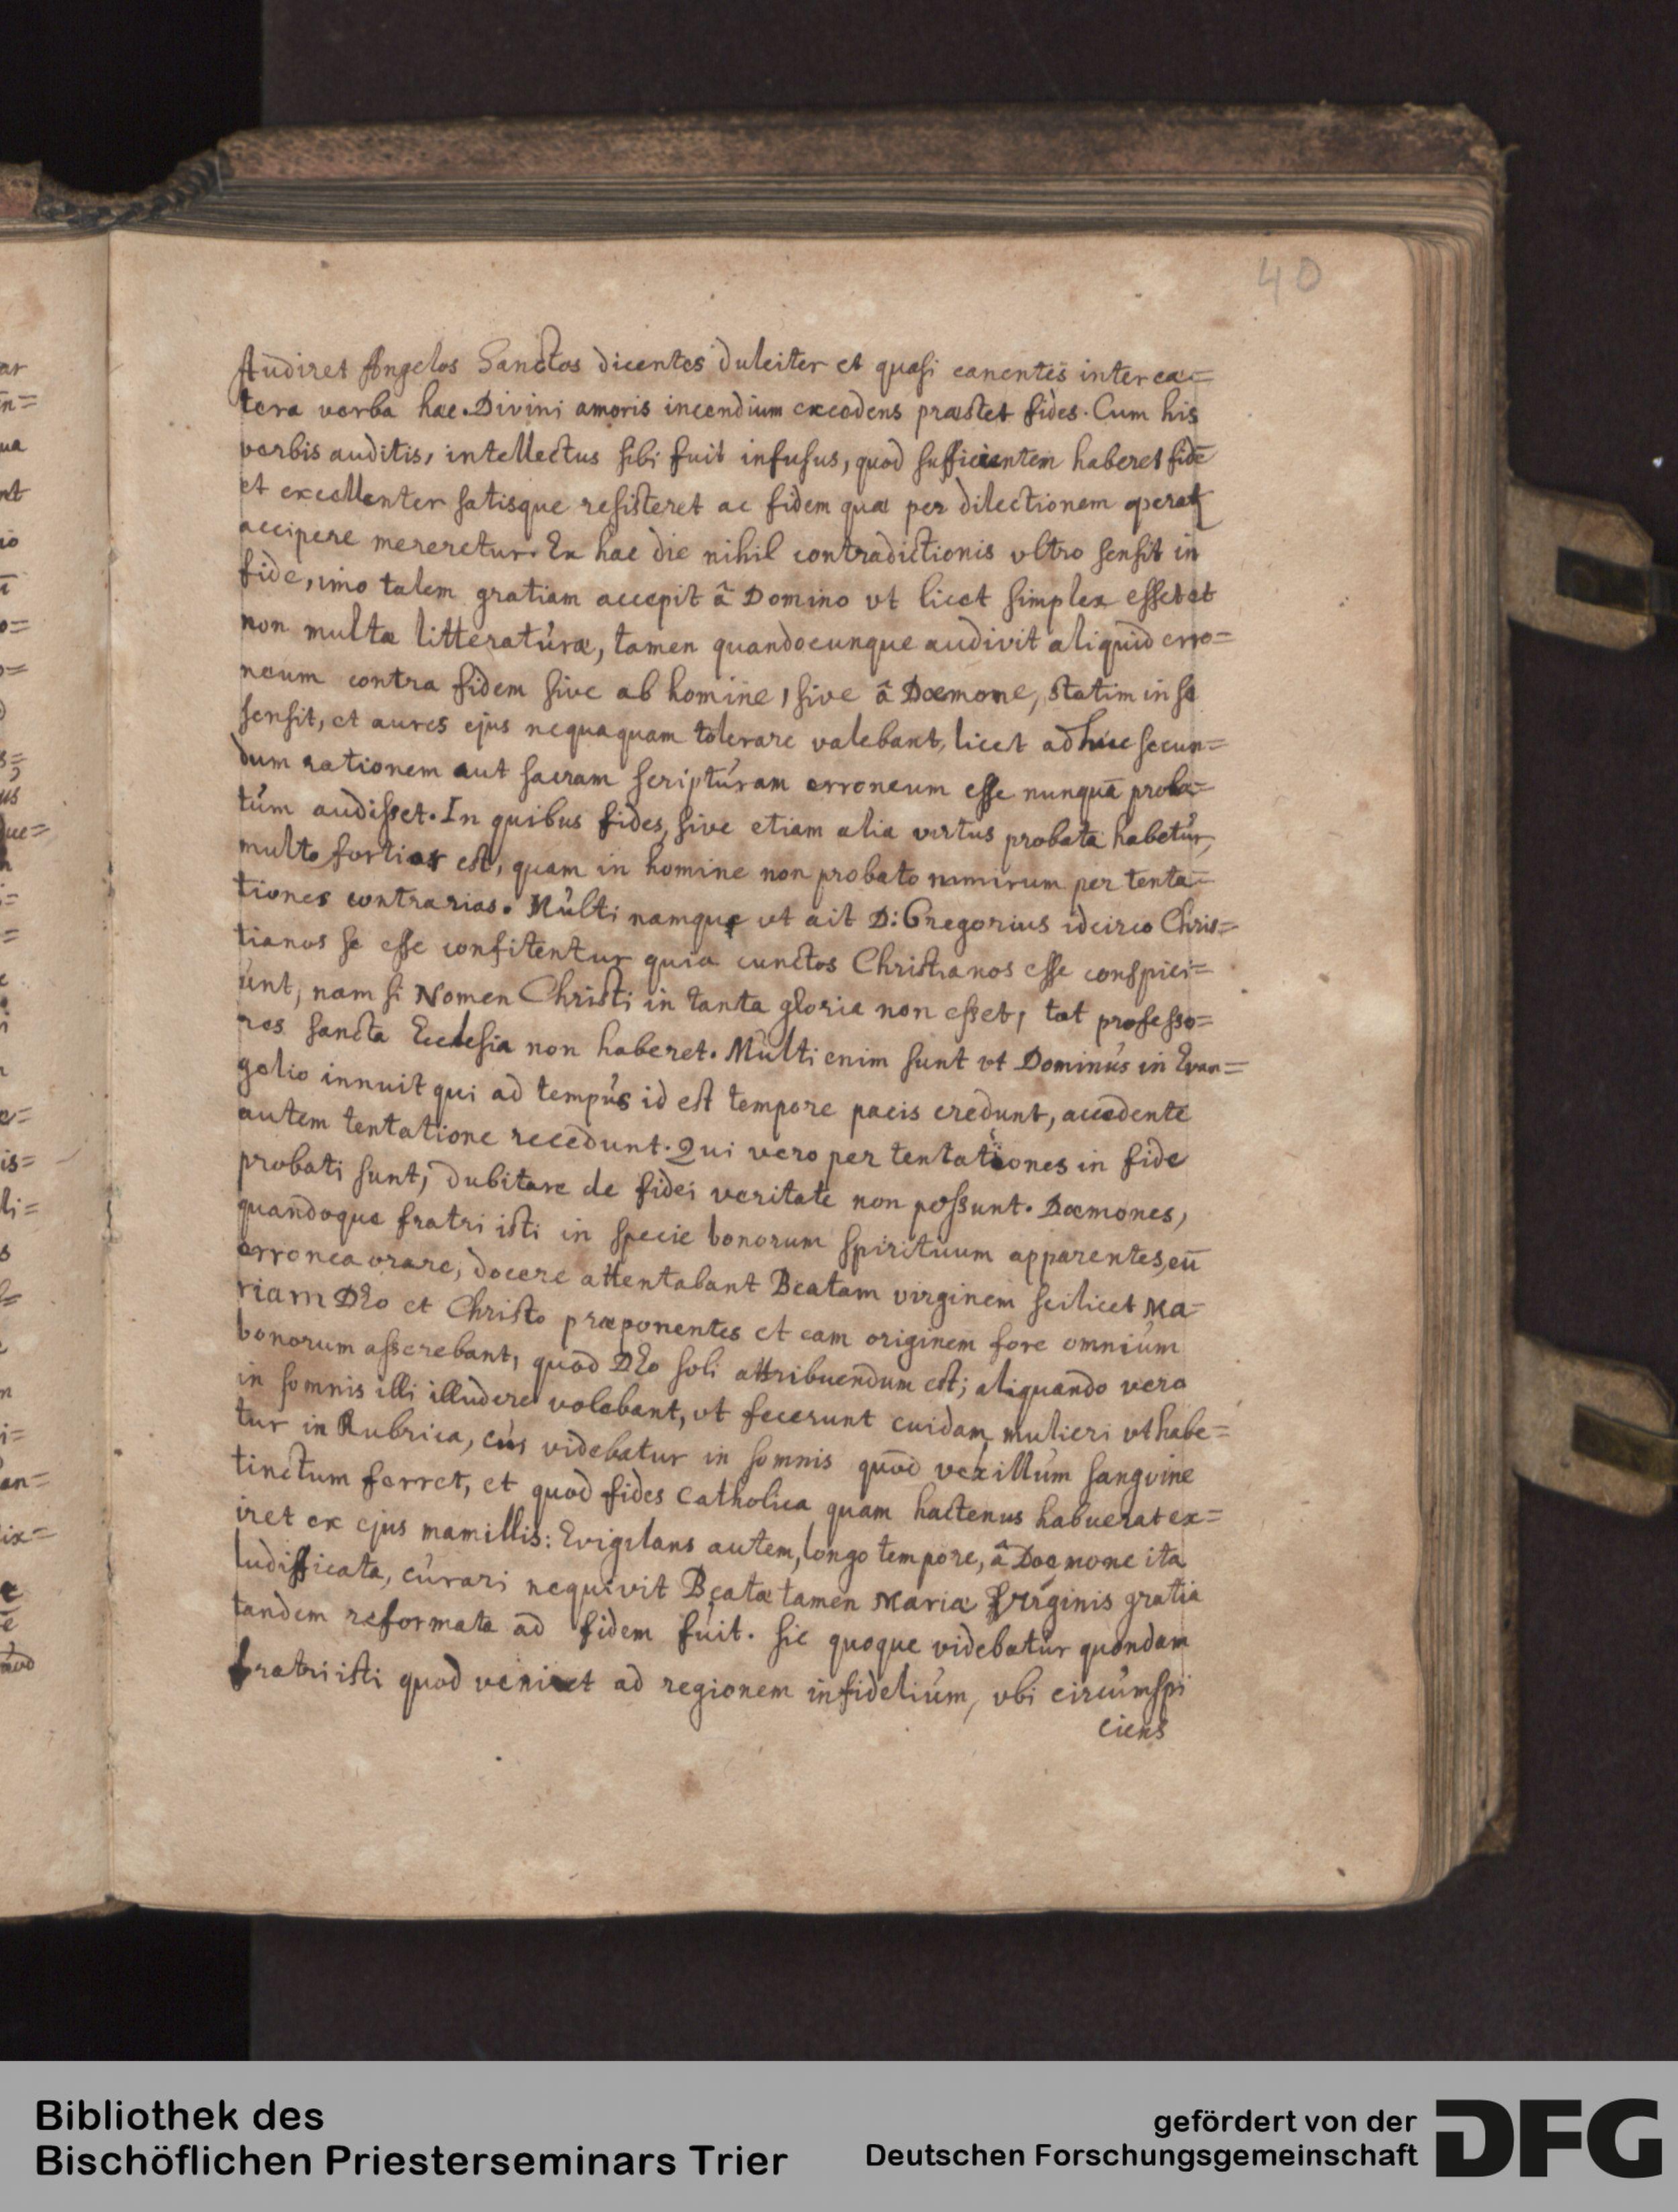 40
Audiret Angelos Sanctos dicentes dulciter et quasi canentes inter cæ=
tera verba hæc. Divini amoris incendium excedens præstet fides. Cum his
verbis auditis, intellectus sibi fuit infusus, quod sufficientem haberet fidē
et excellenter satisque resisteret ac fidem quæ per dilectionem operat
accipere mereretur. Ex hac die nihil contradictionis vltro sensit in
fide, imo talem gratiam accepit â Domino vt licet simplex esset et
non multæ litteratúræ, tamen quandocunque audivit aliquid erro=
neum contra fidem sive ab homine, sive â Dæmone, statim in se
sensit, et aures ejus nequaquam tolerare valebant, licet adhuc secun=
dum rationem aut sacram scriptúram erroneum esse nunquā proba=
túm audisset. In quibus fides, sive etiam alia virtus probata habetúr,
multo fortior est, quam in homine non probato nimirum per tenta=
tiones contrarias. Múlti namque vt ait D: Gregorius idcirco Chris=
tianos se esse confitentur quia cunctos Christianos esse conspici=
únt, nam si Nomen Christi in tanta gloria non esset, tot professo=
res sancta Ecclesia non haberet. Múlti enim sunt vt Dominús in Evan=
gelio innuit qui ad tempús id est tempore pacis credunt, accedente
autem tentatione recedunt. Qui vero per tentationes in fide
probati sunt, dubitare de fidei veritate non possunt. Dæmones,
quandoque fratri isti in specie bonorum spirituum apparentes, eū
erronea orare, docere attentabant Beatam virginem scilicet Ma=
riam Deo et Christo præponentes et eam originem fore omniúm
bonorum asserebant, quod Deo soli attribuendum est; aliquando vero
in somnis illi illudere volebant, vt fecerunt cuidam mulieri vt habe=
tur in Rubrica, cúi videbatur in somnis quód vexillúm sangvine
tinctum ferret, et quod fides Catholica quam hactenus habuerat ex=
iret ex ejus mamillis: Evigilans autem, longo tempore, â Dæmone ita
ludifficata, cúrari nequivit Beatæ tamen Mariæ Virginis gratia
tandem reformata ad fidem fúit. sic quoque videbatúr quondam
fratri isti quod veniret ad regionem infideliúm, vbi circúmspi
ciens
Bibliothek des
Bischöflichen Priesterseminars Trier
gefördert von der
Deutschen Forschungsgemeinschaft
DFG